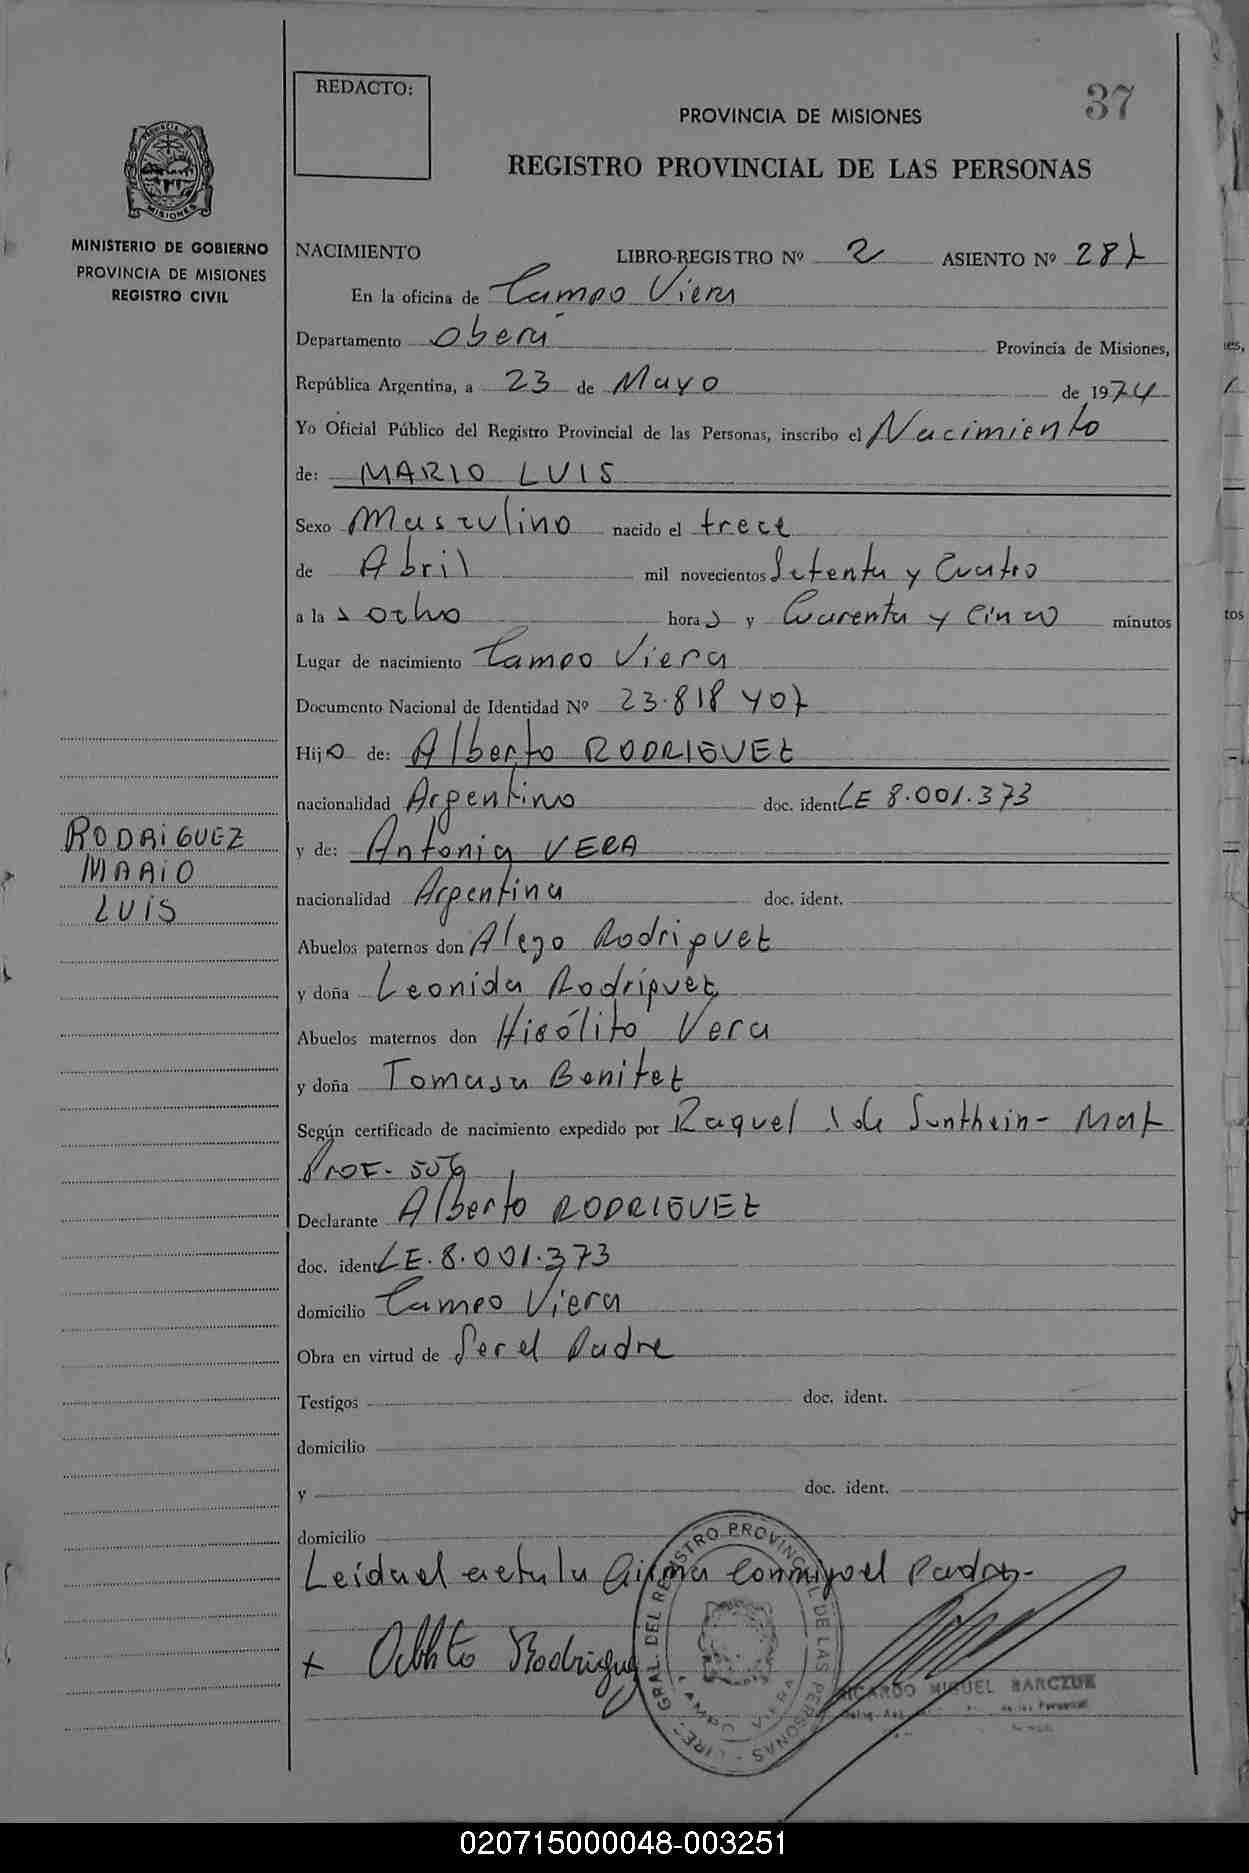 REDACTO:
37
PROVINCIA DE MISIONES
REGISTRO PROVINCIAL DE LAS PERSONAS
PROVINCIA DE
MISIONES
MINISTERIO DE GOBIERNO
PROVINCIA DE MISIONES
REGISTRO CIVIL
NACIMIENTO LIBRO-REGISTRO Nº 2 ASIENTO Nº 287
En la oficina de Campo Viera
Departamento Oberá Provincia de Misiones,
República Argentina, a 23 de Mayo de 1974
Yo Oficial Público del Registro Provincial de las Personas, inscribo el Nacimiento
de: MARIO LUIS
Sexo Masculino nacido el trece
de Abril mil novecientos Setenta y Cuatro
a las ocho horas y Cuarenta y Cinco minutos
Lugar de nacimiento Campo Viera
Documento Nacional de Identidad Nº 23.818 407
Hijo de: Alberto RODRIGUEZ
nacionalidad Argentino doc. ident. LE 8.001.373
RODRIGUEZ
MARIO
LUIS
y de: Antonia VERA
nacionalidad Argentina doc. ident.
Abuelos paternos don Alejo Rodriguez
y doña Leonida Rodríguez
Abuelos maternos don Hipólito Vera
y doña Tomasa Benitez
Según certificado de nacimiento expedido por Raquel S de Sunthein- Mat
Prof-
Declarante Alberto RODRIGUEZ
doc. ident. LE.8.001.373
domicilio Campo Viera
Obra en virtud de Ser el Padre
Testigos doc. ident.
domicilio
y doc. ident.
domicilio
Leída el acta la firma conmigo el Padre-
x Rodriguez
GRAL. DEL REGISTRO PROVINCIAL DE LAS PERSONAS
RICARDO MIGUEL BARCZUK
020715000048-003251